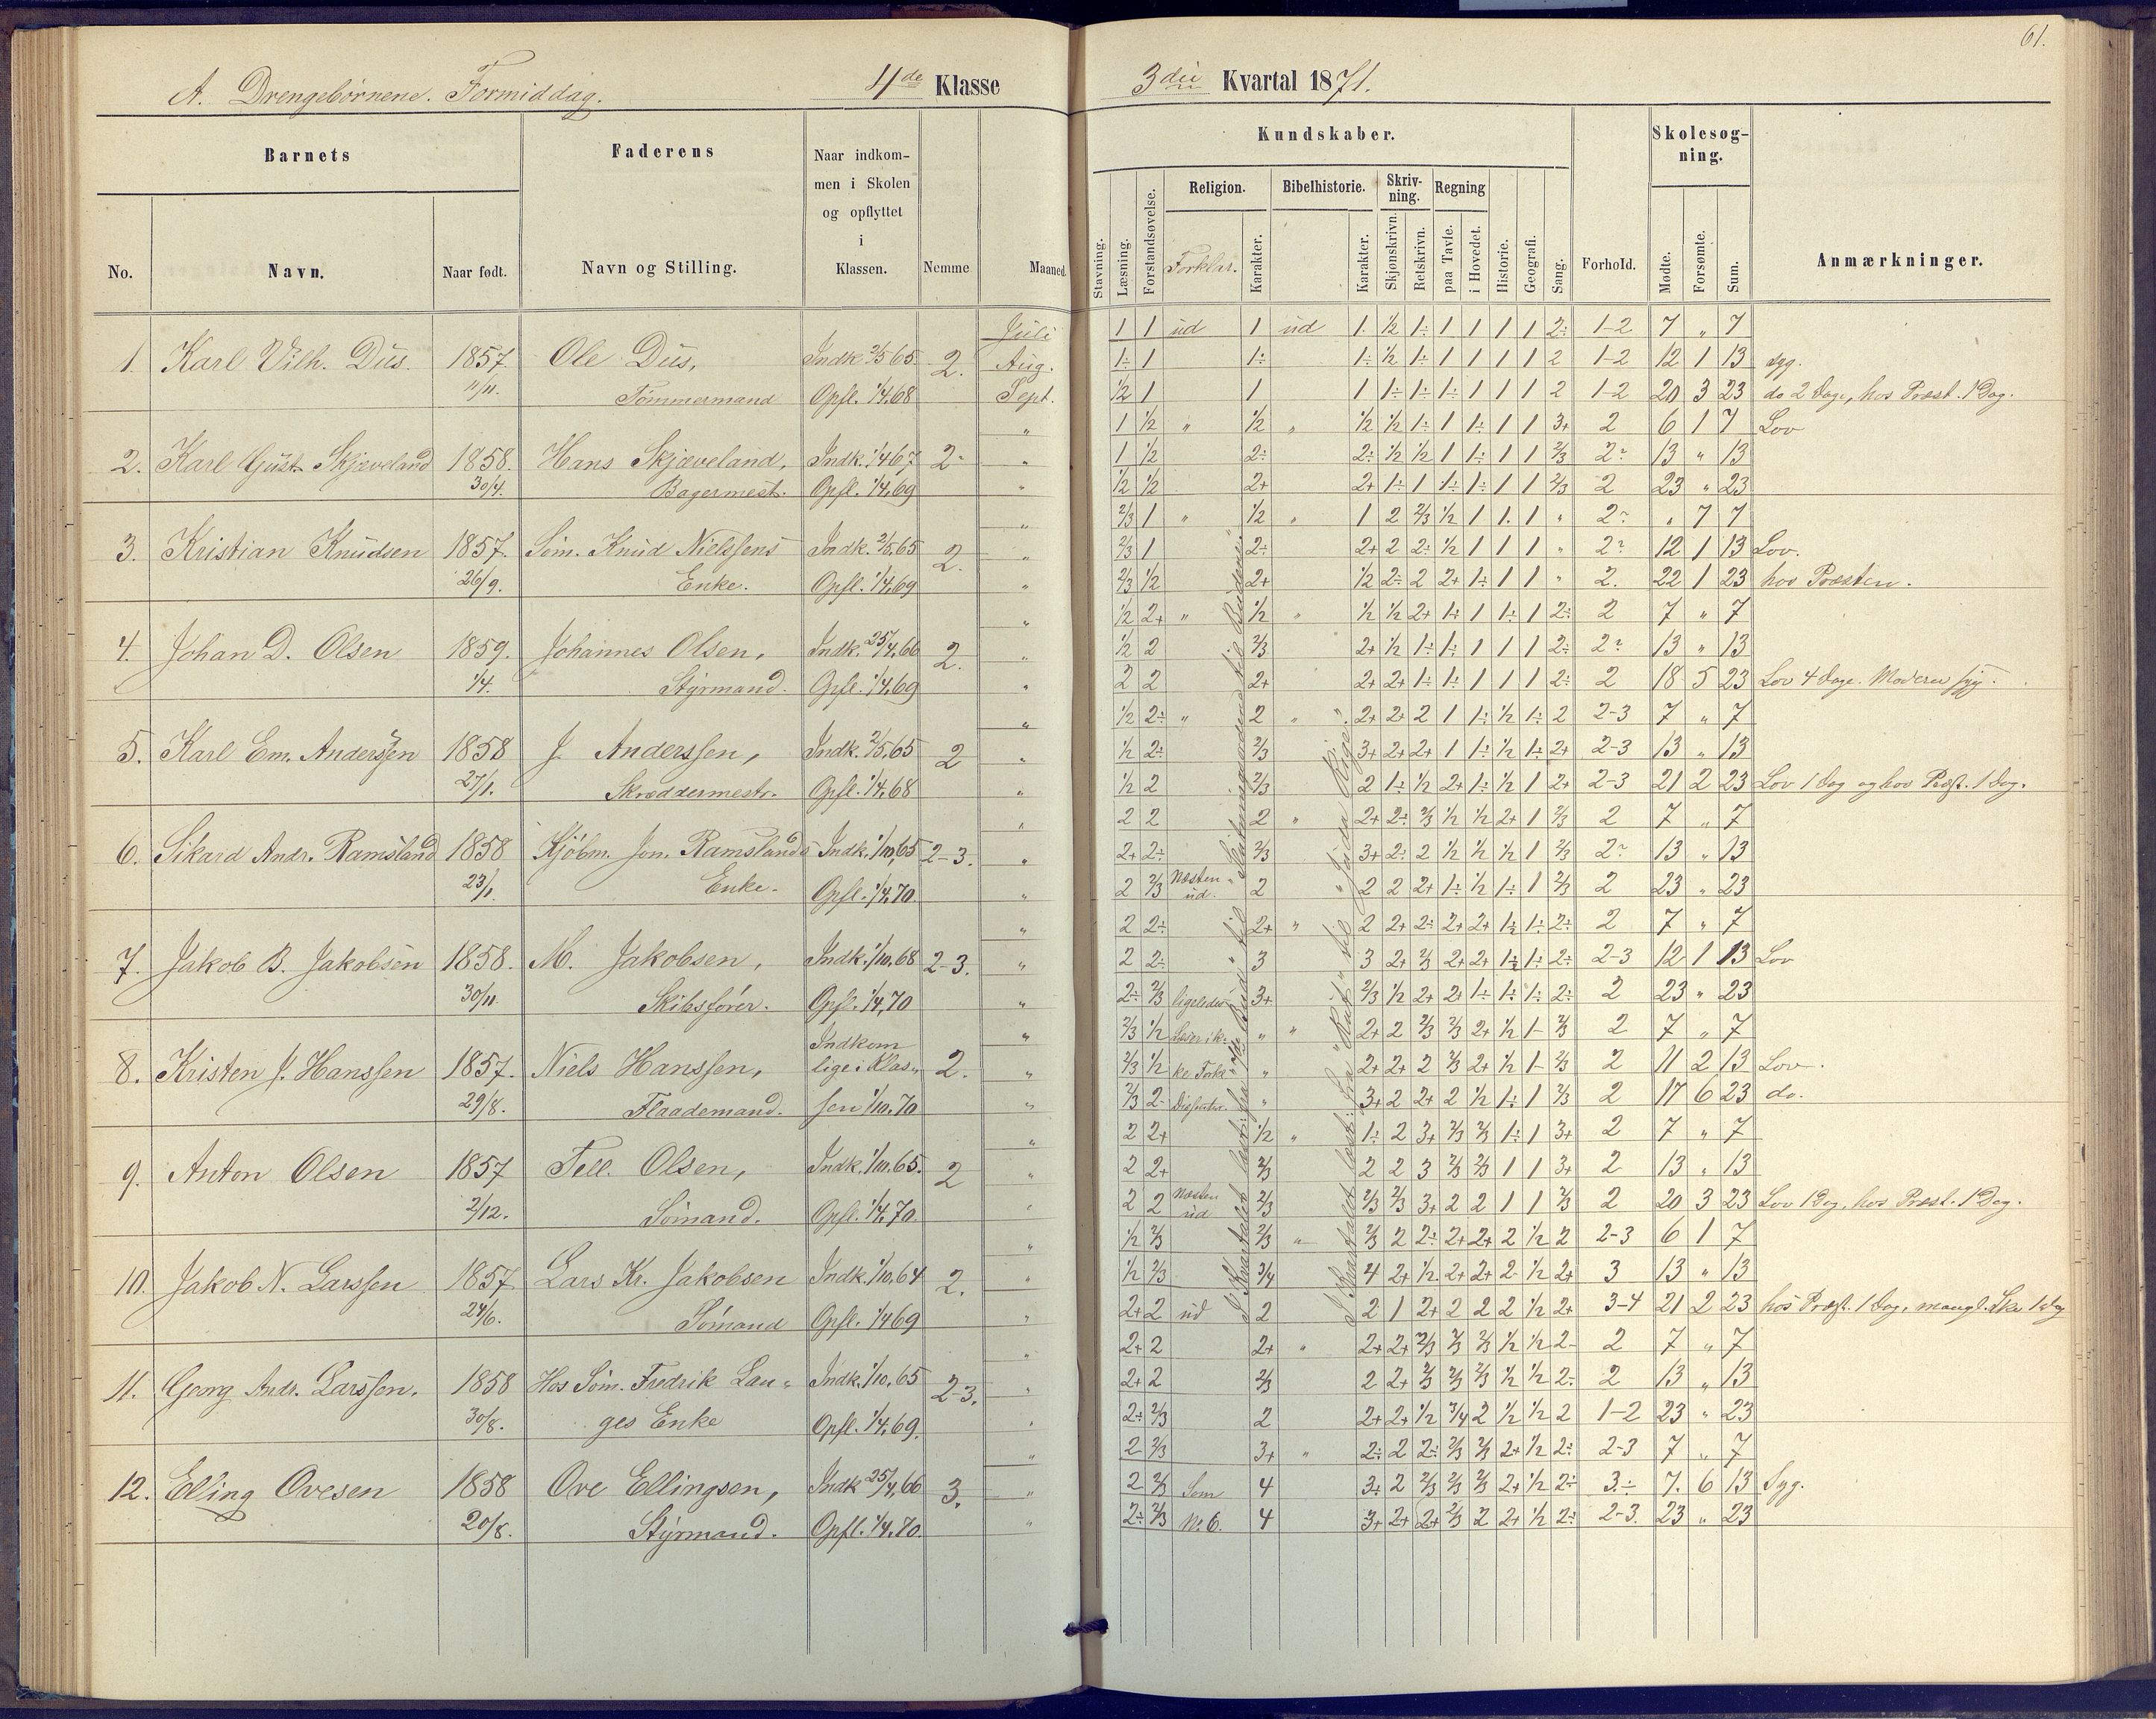 61.
A. Drengebørnene. Formiddag. 4de Klasse 3die Kvartal 1871.
Barnets Faderens Naar indkommen i Skolen og opflyttet i Klassen. Nemme Maaned. Kundskaber. Forhold. Skolesøgning. Anmærkninger.
No. Navn. Naar født. Navn og Stilling.
Stavning. Læsning. Forstandsøvelse. Religion. Forklar. Karakter. Bibelhistorie. Karakter. Skrivning. Skjønskrivn. Retskrivn. Regning paa Tavle. i Hovedet. Historie. Geografi. Sang. Mødte. Forsømte. Sum.
Juli 1 1 ud 1 ud 1. ½ 1÷ 1 1 1 1 2÷ 1-2 7 „ 7
1. Karl Vilh. Dus. 1857. Ole Dus, Indk. 2/5 65 2. Aug. 1÷ 1 1÷ 1÷ ½ 1÷ 1 1 1 1 2 1-2 12 1 13 syg.
11/11. Tømmermand Opfl. 1/4 68 Sept. ½ 1 1 1 1÷ 1÷ 1÷ 1 1 1 2 1-2 20 3 23 do 2 Dage, hos Præst. 1 Dag.
„ 1 ½ „ ½ „ ½ ½ 1÷ 1 1÷ 1 1 3+ 2 6 1 7 Lov
2. Karl Gust. Skjæveland 1858. Hans Skjæveland, Indk. 1/4 67 2÷ „ 1 ½ 2÷ 2÷ ½ ½ 1 1÷ 1 1 2/3 2? 13 „ 13
30/4. Bagermest. Opfl. 1/4 69 „ ½ ½ 2+ 2+ 1÷ 1 1÷ 1÷ 1 1 2/3 2 23 „ 23
„ 2/3 1 „ ½ „ 1 2 2/3 ½ 1 1. 1 „ 2? „ 7 7
3. Kristian Knudsen 1857. Søm. Knud Nielssens Indk. 2/5 65 2. „ 2/3 1 2÷ 2+ 2 2÷ ½ 1 1 1 „ 2? 12 1 13 Lov.
26/9. Enke. Opfl. 1/4 69 „ 2/3 ½ 2+ ½ 2÷ 2 2+ 1÷ 1 1 „ 2. 22 1 23 hos Præsten.
„ ½ 2+ „ ½ „ ½ ½ 2+ 1÷ 1 1÷ 1 2÷ 2 7 „ 7
4. Johan D. Olsen 1859. Johannes Olsen, Indk. 25/4 66 2. „ ½ 2 2/3 2+ ½ 1÷ 1÷ 1 1 1 2÷ 2? 13 „ 13
1/4. Styrmand. Opfl. 1/4 69 „ 2 2 2+ 2+ 2+ 1÷ 1÷ 1 1 1 2÷ 2 18 5 23 Lov 4 Dage. Moderen syg.
„ ½ 2÷ „ 2 „ 2+ 2+ 2 1 1÷ ½ 1÷ 2 2-3 7 „ 7
5. Karl Em. Anderssen 1858 J. Anderssen, Indk. 2/5 65 2 „ ½ 2÷ 2/3 3+ 2+ 2+ 1 1÷ ½ 1÷ 2+ 2-3 13 „ 13
27/1. Skræddermestr. Opfl. 1/4 68 „ ½ 2 2/3 2 1÷ ½ 2+ 1÷ ½ 1 2+ 2-3 21 2 23 Lov 1 Dag og hos Præst. 1 Dag.
„ 2 2 2 „ 2+ 2÷ 2/3 ½ ½ 2+ 1 2/3 2 7 „ 7
6. Sikard Andr. Ramsland 1858 Kjøbm. Jon. Ramslands Indk. 1/10 65 2-3. „ 2+ 2÷ 2/3 3+ 2÷ 2 ½ ½ ½ 1 2/3 2? 13 „ 13
23/1. Enke. Opfl. 1/4 70. „ 2 2/3 Næsten ud. 2 2 2 2+ 1÷ ½ 1÷ 1 2/3 2 23 „ 23
„ 2 2÷ 2+ „ 2 2+ 2÷ 2+ 2+ 1½ 1÷ 2÷ 2 7 „ 7
7. Jakob B. Jakobsen 1858. M. Jakobsen, Indk. 1/10 68 2-3. „ 2 2÷ 3 3 2+ 2/3 2+ 2+ 1½ 1÷ 2÷ 2-3 12 1 13 Lov
30/11. Skibsfører. Opfl. 1/4 70 „ 2÷ 2/3 ligeledes 3+ 2/3 ½ 2+ 2+ 1÷ 1÷ 1÷ 2÷ 2 23 „ 23
Indkom „ 2/3 ½ „ „ 2+ 2 2/3 2/3 2+ ½ 1- 2/3 2 7 „ 7
8. Kristen J. Hanssen 1857. Niels Hanssen, lige i Klas- 2. „ 2/3 ½ „ 2+ 2+ 2 2/3 2+ ½ 1- 2/3 2 11 2 13 Lov.
29/8. Flaademand. sen 1/10 70 „ 2/3 2- „ 3+ 2 2+ 2 ½ 1÷ 1 2/3 2 17 6 23 do.
„ 2 2+ ½ „ 1÷ 2 3+ 2/3 2/3 1÷ 1 3+ 2 7 „ 7
9. Anton Olsen 1857 Tell. Olsen, Indk. 1/10 65. 2 „ 2 2+ 2/3 2 2 3 2/3 2/3 1 1 3+ 2 13 „ 13
2/12. Sømand. Opfl. 1/4 70. „ 2 2 Næsten ud 2/3 2/3 2/3 3+ 2 2 1 1 2/3 2 20 3 23 Lov 1 Dag, hos Præst. 1 Dag.
„ ½ 2/3 2/3 „ 2/3 2 2÷ 2+ 2+ 2 ½ 2 2-3 6 1 7
10. Jakob N. Larssen 1857 Lars Kr. Jakobsen Indk. 1/10 64 2. „ ½ 2/3 3/4 4 2+ ½. 2+ 2+ 2 ½ 2+ 3 13 „ 13
24/6. Sømand Opfl. 1/4 69 „ 2+ 2 ud 2 2 1 2+ 2 2 2 ½ 2+ 3-4 21 2 23 hos Præst. 1 Dag, mangl. Sko 1 Dag
„ 2+ 2 2+ „ 2+ 2+ 2/3 2/3 2/3 ½ ½ 2- 2 7 „ 7
11. Georg Andr. Larssen. 1858 Hos Søm. Fredrik Lan- Indk. 1/10 65 2-3. „ 2+ 2 2/3 2 2+ 2/3 2/3 2/3 ½ ½ 2÷ 2 13 „ 13
30/8. ges Enke Opfl. 1/4 69. „ 2÷ 2/3 2 2+ 2+ ½ 3/4 2 ½ ½ 2 1-2 23 „ 23
„ 2- 2/3 3+ „ 2÷ 2 2÷ 2/3 2/3 2+ ½ 2÷ 2-3 7 „ 7
12. Elling Ovesen 1858 Ove Ellingsen, Indk 25/4 66 3. „ 2 2/3 Som 4 3+ 2 2/3 2/3 2/3 2+ ½ 2÷ 3÷ 7. 6 13 Syg.
20/8. Styrmand. Opfl. 1/4 70 „ 2÷ 2/3 N. 6. 4 3+ 2+ 2+ 2/3 2 2+ ½ 2÷ 2-3. 23 „ 23